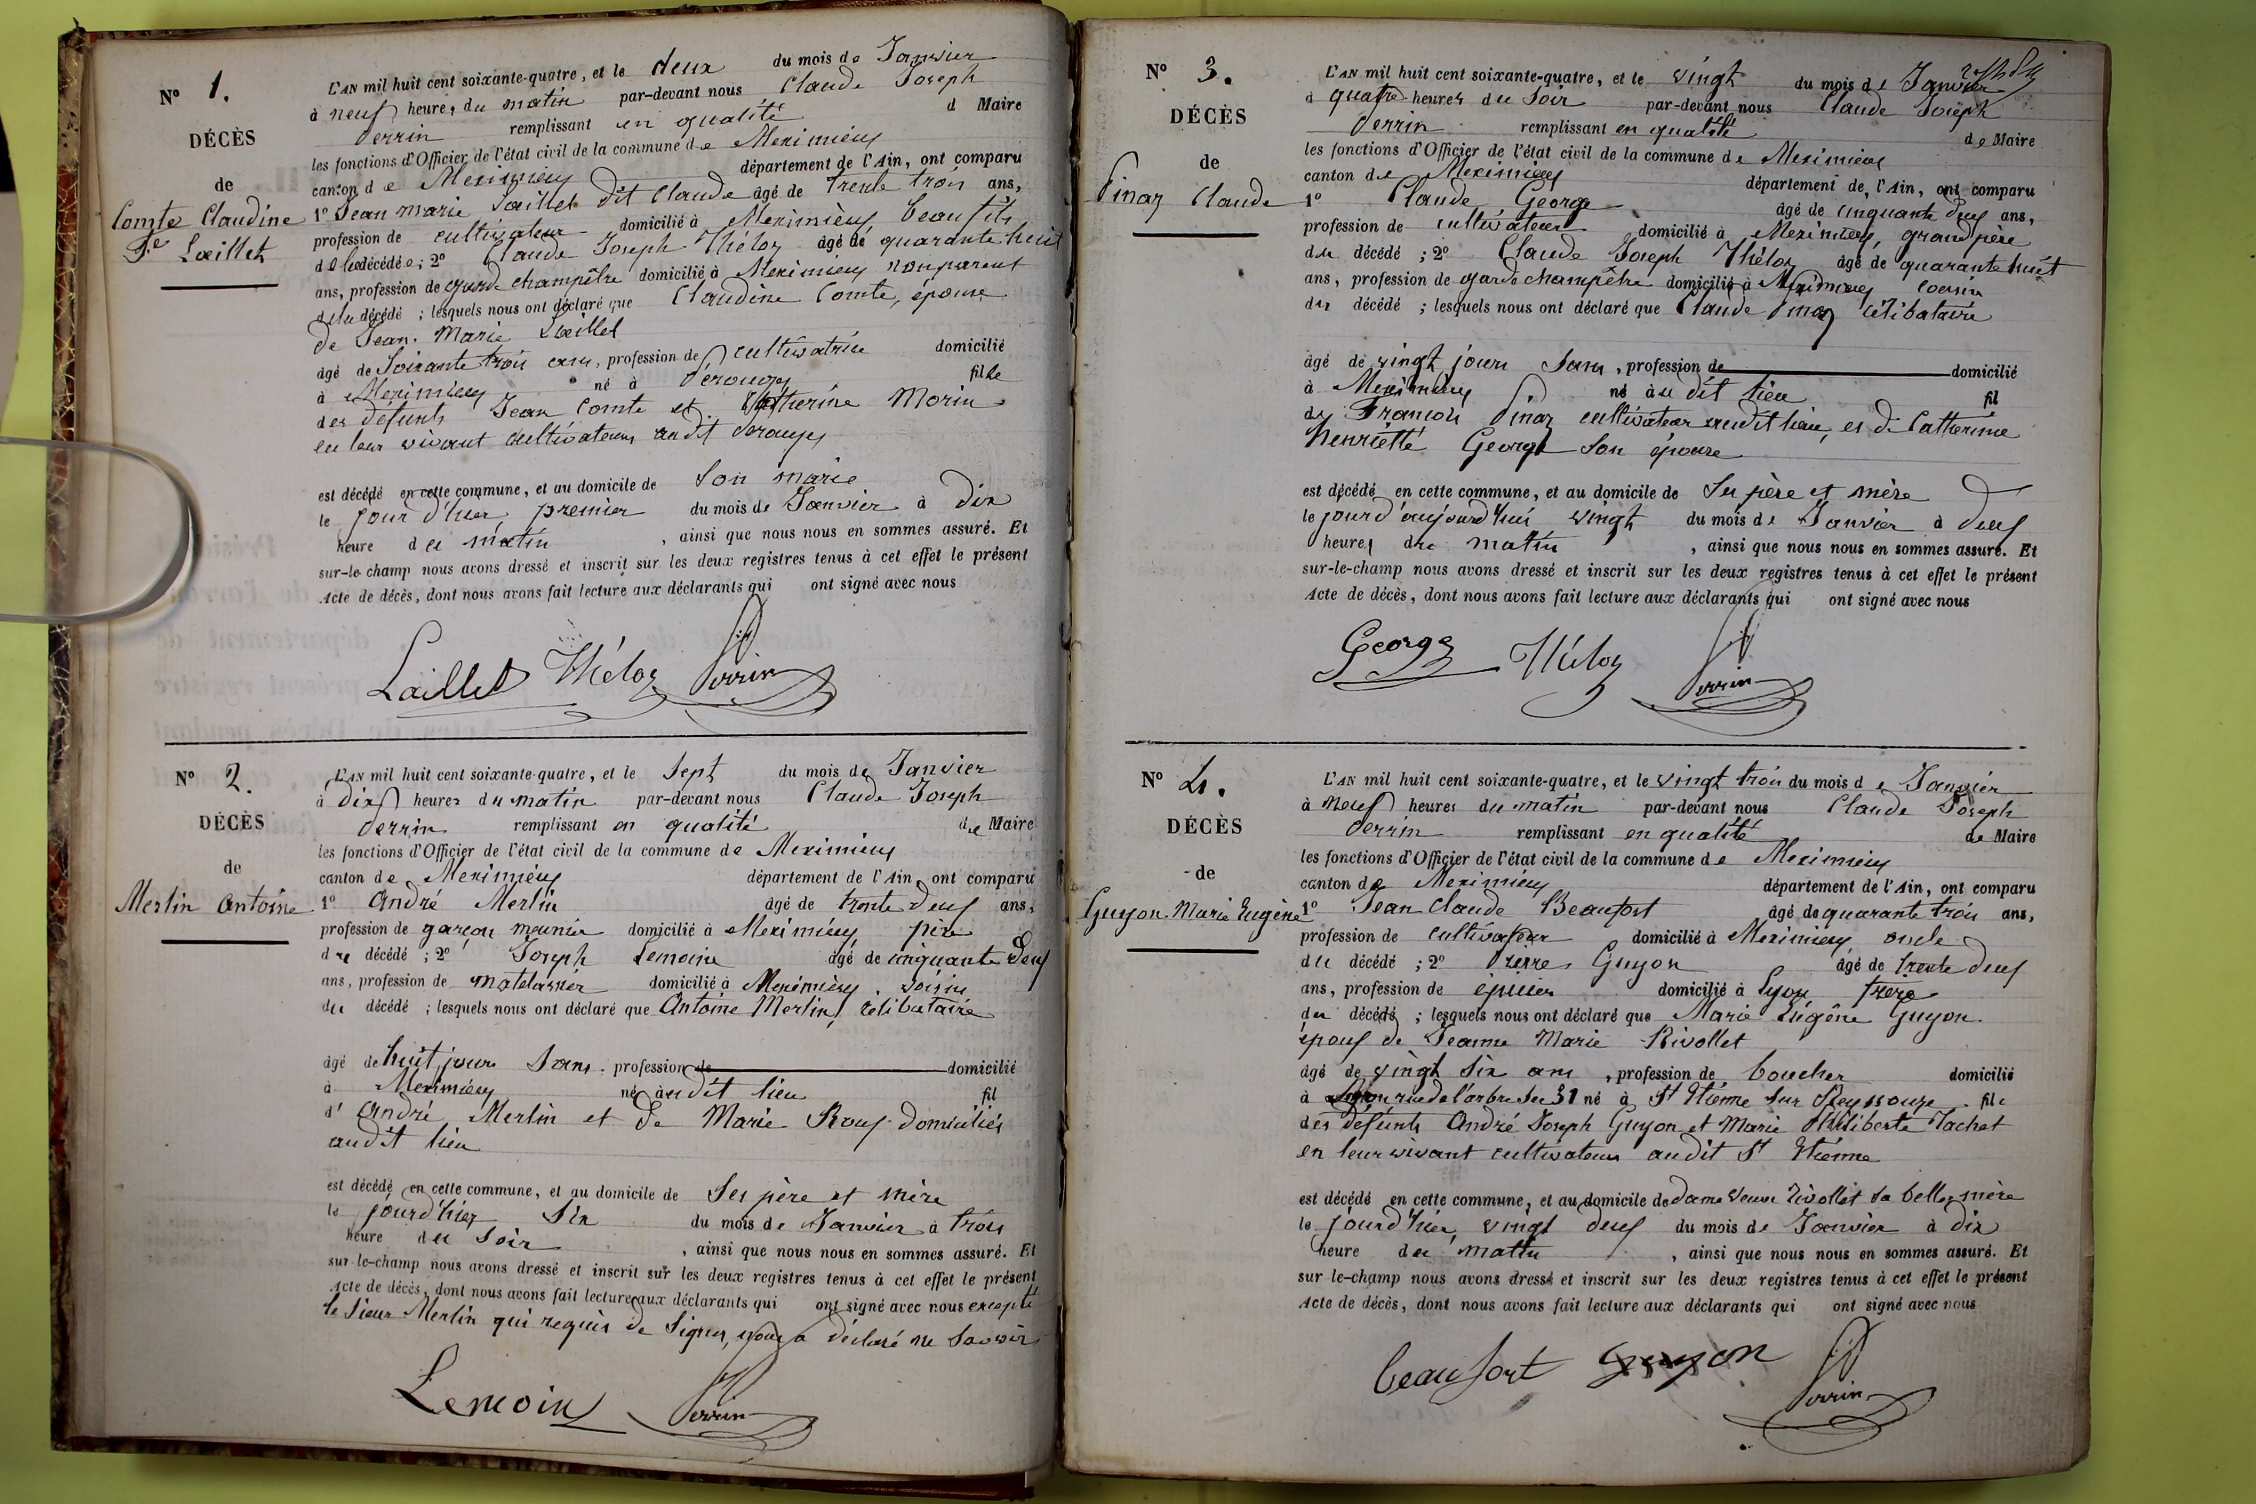 N° 1.
DÉCÈS
de
Comte Claudine
Fe Laillet
L'AN mil huit cent soixante-quatre, et le deux du mois de Janvier
à neuf heures du matin par-devant nous Claude Joseph
Perrin remplissant en qualité d Maire
les fonctions d'Officier de l'état civil de la commune de Meximieux
canton de Meximieux département de l'Ain, ont comparu
1° Jean marie Laillet dit Claude âgé de trente trois ans,
profession de cultivateur domicilié à Meximieux beau fils
de la décédée ; 2° Claude Joseph Théloz âgé de quarante huit
ans, profession de garde champêtre domicilié à Meximieux non parent
de la décédé ; lesquels nous ont déclaré que Claudine Comte, épouse
de Jean Marie Laillet
âgé de Soixante trois ans, profession de cultivatrice domicilié
à Meximieux né à Pérouges fille
des défunts Jean Comte et Catherine Morin
en leur vivant cultivateurs audit Pérouges
est décédé en cette commune, et au domicile de Son marie
le jour d'hier premier du mois de Janvier à dix
heure du matin , ainsi que nous nous en sommes assuré. Et
sur-le-champ nous avons dressé et inscrit sur les deux registres tenus à cet effet le présent
Acte de décès, dont nous avons fait lecture aux déclarants qui ont signé avec nous
Laillet Théloz Perrin
N° 2.
DÉCÈS
de
Merlin Antoine
L'AN mil huit cent soixante-quatre, et le Sept du mois de Janvier
à dix heures du matin par-devant nous Claude Joseph
Perrin remplissant en qualité de Maire
les fonctions d'Officier de l'état civil de la commune de Meximieux
canton de Meximieux département de l'Ain, ont comparu
1° André Merlin âgé de trente deux ans,
profession de garçon meunier domicilié à Meximieux père
du décédé ; 2° Joseph Lemoine âgé de cinquante deux
ans, profession de matelassier domicilié à Meximieux voisin
du décédé ; lesquels nous ont déclaré que Antoine Merlin, célibataire
âgé de huit jours Sans profession de domicilié
à Meximieux né audit lieu fil
d' André Merlin et de Marie Roux domiciliés
audit lieu
est décédé en cette commune, et au domicile de Ses père et mère
le jour d'hier Six du mois de Janvier à trois
heure du Soir , ainsi que nous nous en sommes assuré. Et
sur-le-champ nous avons dressé et inscrit sur les deux registres tenus à cet effet le présent
Acte de décès, dont nous avons fait lecture aux déclarants qui ont signé avec nous excepté
le Sieur Merlin qui requis de Signer, nous a déclaré ne Savoir
Lemoin Perrin
N° 3.
DÉCÈS
de
Pinaz Claude
L'AN mil huit cent soixante-quatre, et le vingt du mois de Janvier
à quatre heures du Soir par-devant nous Claude Joseph
Perrin remplissant en qualité de Maire
les fonctions d'Officier de l'état civil de la commune de Meximieux
canton de Meximieux département de l'Ain, ont comparu
1° Claude George âgé de cinquante deux ans,
profession de cultivateur domicilié à Meximieux, grand père
du décédé ; 2° Claude Joseph Théloz âgé de quarante huit
ans, profession de garde champêtre domicilié à Meximieux voisin
du décédé ; lesquels nous ont déclaré que Claude Pinaz célibataire
âgé de vingt jours Sans, profession de domicilié
à Meximieux né audit lieu fil
de François Pinaz cultivateur audit lieu, et de Catherine
henriette George Son épouse
est décédé en cette commune, et au domicile de Ses père et mère
le jourd'aujourd'hui vingt du mois de Janvier à deux
heures du matin , ainsi que nous nous en sommes assuré. Et
sur-le-champ nous avons dressé et inscrit sur les deux registres tenus à cet effet le présent
Acte de décès, dont nous avons fait lecture aux déclarants qui ont signé avec nous
George Théloz Perrin
N° 4.
DÉCÈS
de
Guyon Marie Eugène
L'AN mil huit cent soixante-quatre, et le vingt trois du mois de Janvier
à neuf heures du matin par-devant nous Claude Joseph
Perrin remplissant en qualité de Maire
les fonctions d'Officier de l'état civil de la commune de Meximieux
canton de Meximieux département de l'Ain, ont comparu
1° Jean Claude Beaufort âgé de quarante trois ans,
profession de cultivateur domicilié à Meximieux oncle
du décédé ; 2° Pierre Guyon âgé de trente deux
ans, profession de épicier domicilié à Lyon frère
du décédé ; lesquels nous ont déclaré que Marie Eugène Guyon
époux de Jeanne Marie Rivollet
âgé de vingt Six ans, profession de boucher domicilié
à Lyon rue de l'arbre Sec 31 né à St Etienne Sur Reyssouze fils
des défunts André Joseph Guyon et Marie Philiberte Tachet
en leur vivant cultivateurs audit St Etienne
est décédé en cette commune, et au domicile de dame veuve Rivollet sa belle mère
le jour d'hier, vingt deux du mois de Janvier à dix
heure du matin , ainsi que nous nous en sommes assuré. Et
sur-le-champ nous avons dressé et inscrit sur les deux registres tenus à cet effet le présent
Acte de décès, dont nous avons fait lecture aux déclarants qui ont signé avec nous
Beaufort Guyon Perrin